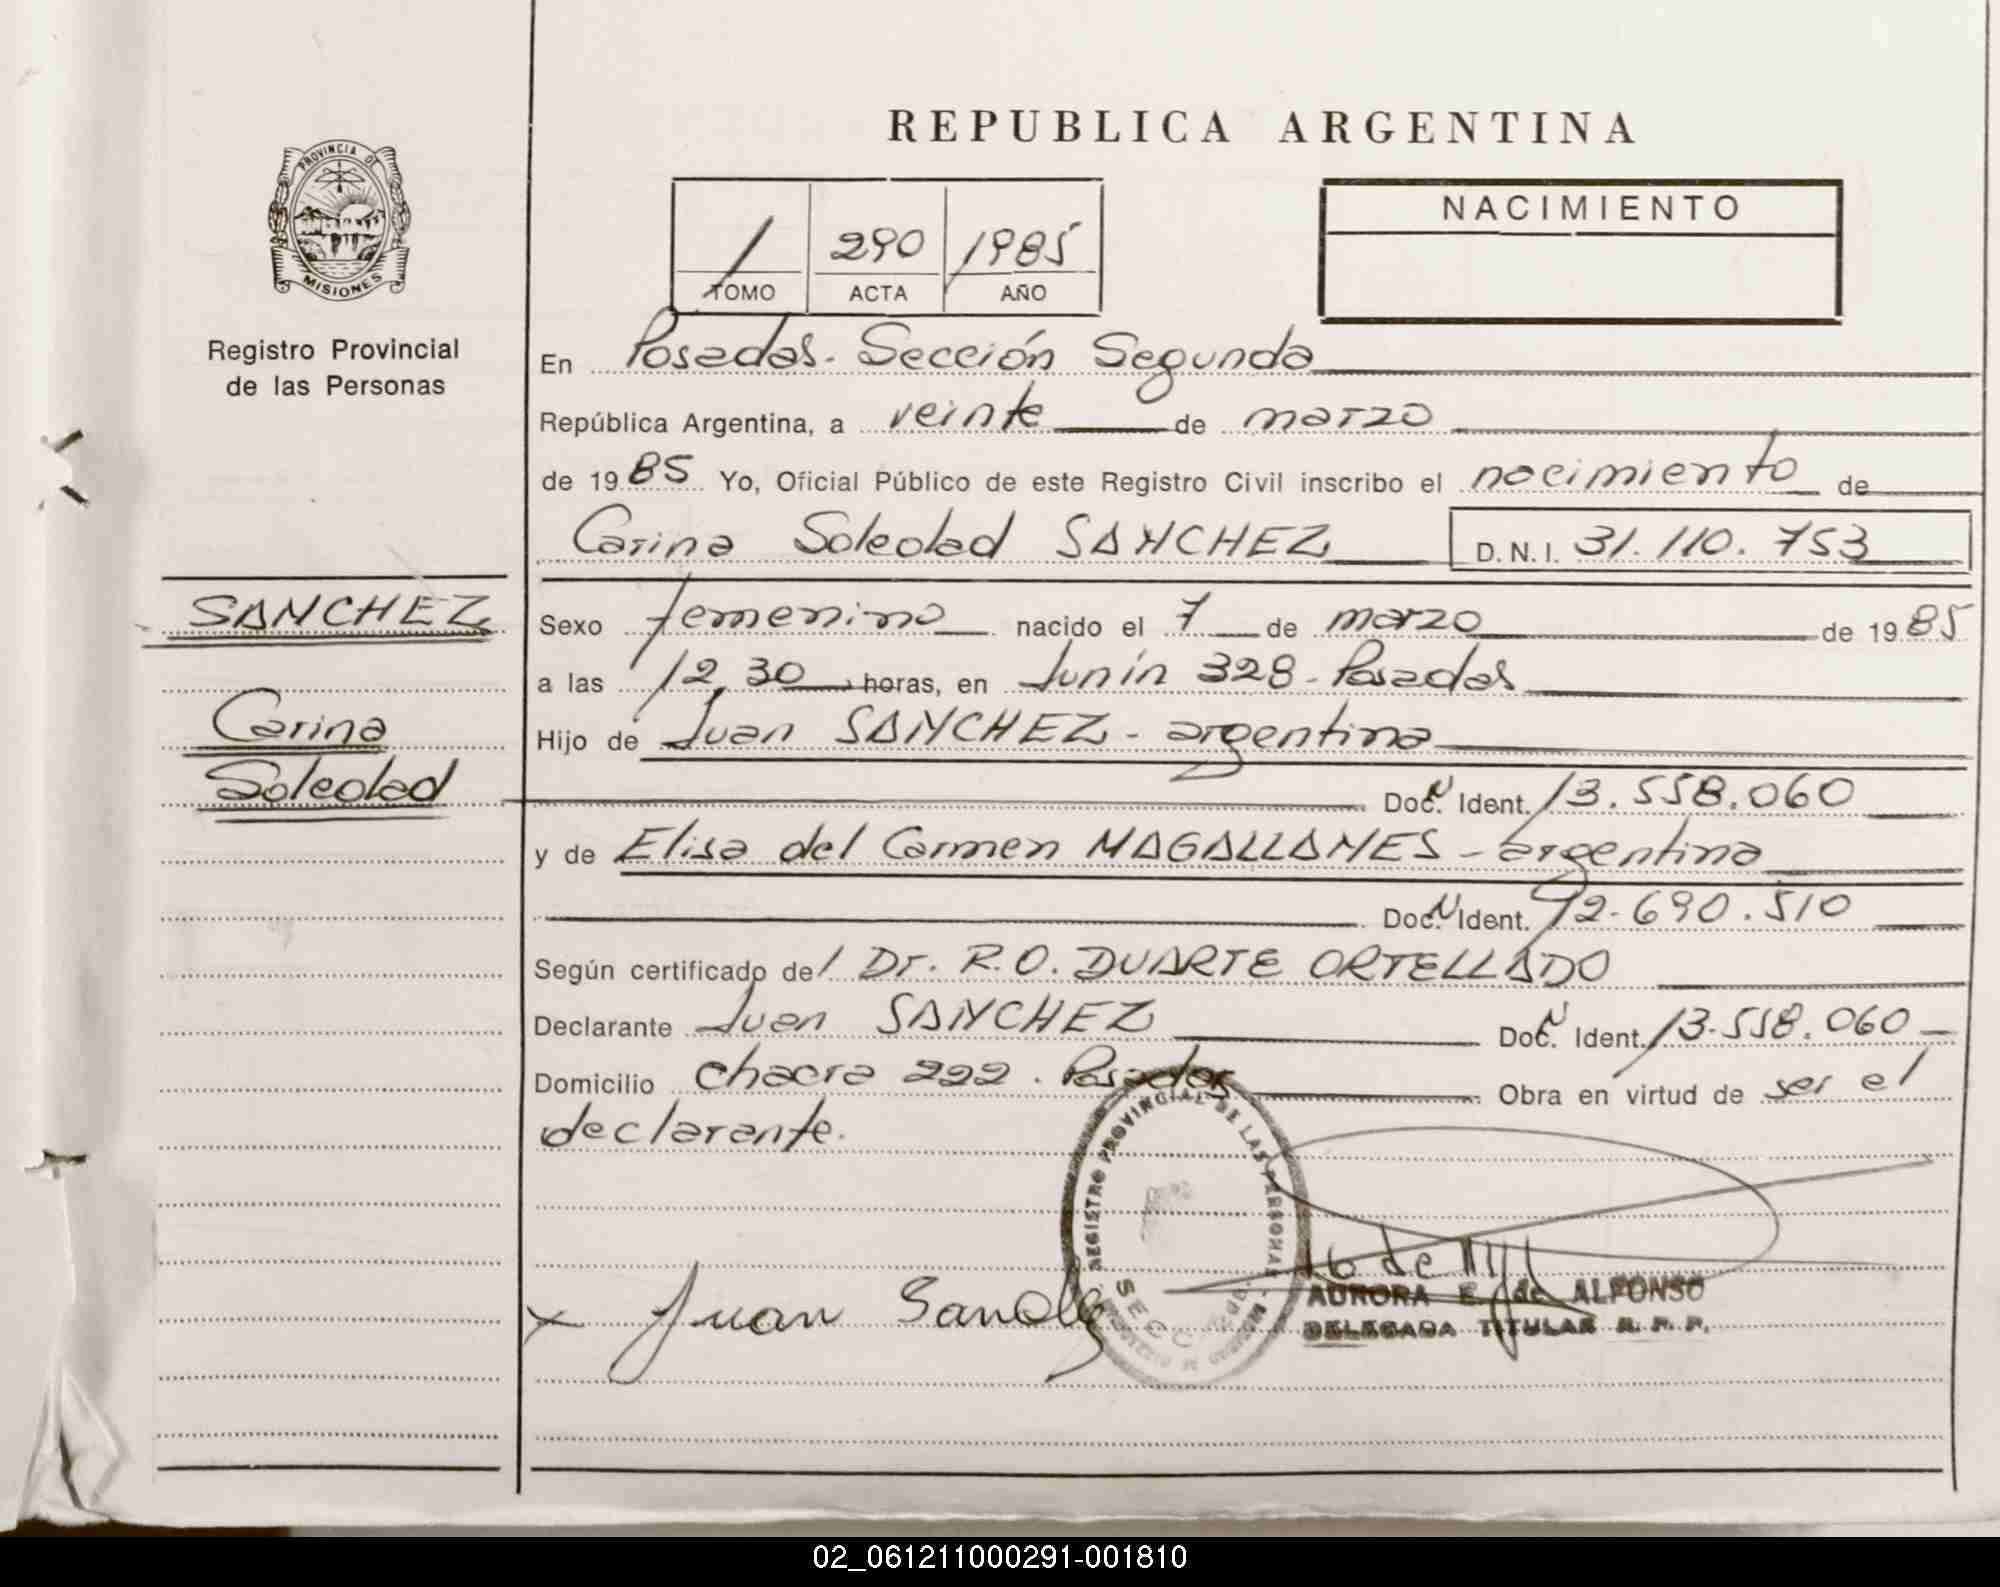 REPUBLICA ARGENTINA
PROVINCIA DE
MISIONES
Registro Provincial
de las Personas
1 290 1985
TOMO ACTA AÑO
NACIMIENTO
En Posadas. Sección Segunda
República Argentina, a veinte de marzo
de 1985 Yo, Oficial Público de este Registro Civil inscribo el nacimiento de
Carina Soledad SANCHEZ D. N. I. 31.110.753
SANCHEZ
Carina
Soledad
Sexo femenino nacido el 7 de marzo de 1985
a las 12,30 horas, en Junín 328 - Posadas
Hijo de Juan SANCHEZ - argentina
Doc. N Ident. 13.558.060
y de Elisa del Carmen MAGALLANES - argentina
Doc. N Ident. 92.690.510
Según certificado del Dr. R.O. DUARTE ORTELLADO
Declarante Juan SANCHEZ Doc. N Ident. 13.558.060
Domicilio chacra 222. Posadas Obra en virtud de ser el
declarante.
REGISTRO PROVINCIAL DE LAS PERSONAS
SECC
AURORA E. de ALFONSO
DELEGADA TITULAR R. P. P.
x Juan Sanche
02_061211000291-001810